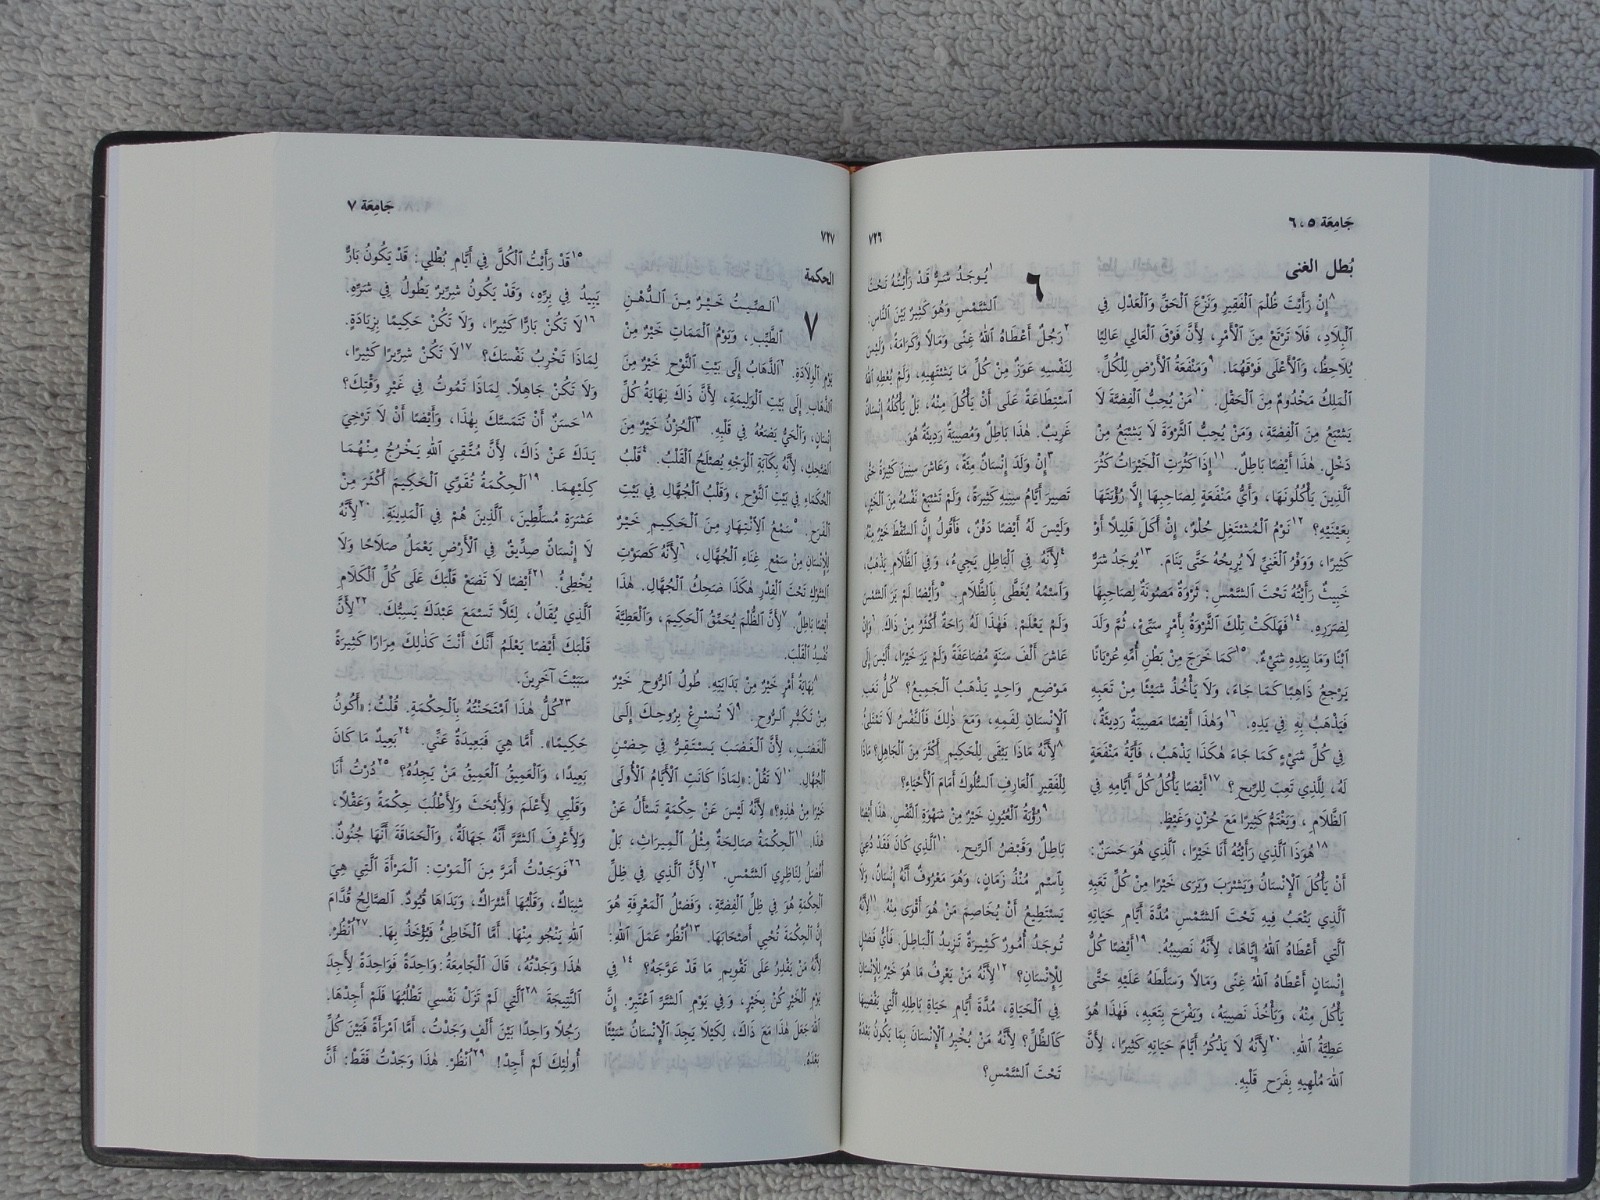 جَامِعَة ٥، ٦
٧٢٦
بُطل الغنى
٨إِنْ رَأَيْتَ ظُلْمَ ٱلْفَقِيرِ وَنَزْعَ ٱلْحَقِّ وَٱلْعَدْلِ فِي
ٱلْبِلَادِ، فَلَا تَرْتَعْ مِنَ ٱلْأَمْرِ، لِأَنَّ فَوْقَ ٱلْعَالِي عَالِيًا
يُلَاحِظُ، وَٱلْأَعْلَى فَوْقَهُمَا. ٩وَمَنْفَعَةُ ٱلْأَرْضِ لِلْكُلِّ.
ٱلْمَلِكُ مَخْدُومٌ مِنَ ٱلْحَقْلِ. ١٠مَنْ يُحِبُّ ٱلْفِضَّةَ لَا
يَشْبَعُ مِنَ ٱلْفِضَّةِ، وَمَنْ يُحِبُّ ٱلثَّرْوَةَ لَا يَشْبَعُ مِنْ
دَخْلٍ. هٰذَا أَيْضًا بَاطِلٌ. ١١إِذَا كَثُرَتِ ٱلْخَيْرَاتُ كَثُرَ
ٱلَّذِينَ يَأْكُلُونَهَا، وَأَيُّ مَنْفَعَةٍ لِصَاحِبِهَا إِلَّا رُؤْيَتَهَا
بِعَيْنَيْهِ؟ ١٢نَوْمُ ٱلْمُشْتَغِلِ حُلْوٌ، إِنْ أَكَلَ قَلِيلًا أَوْ
كَثِيرًا، وَوَفْرُ ٱلْغَنِيِّ لَا يُرِيحُهُ حَتَّى يَنَامَ. ١٣يُوجَدُ شَرٌّ
خَبِيثٌ رَأَيْتُهُ تَحْتَ ٱلشَّمْسِ: ثَرْوَةٌ مَصُونَةٌ لِصَاحِبِهَا
لِضَرَرِهِ. ١٤فَهَلَكَتْ تِلْكَ ٱلثَّرْوَةُ بِأَمْرٍ سَيِّئٍ، ثُمَّ وَلَدَ
ٱبْنًا وَمَا بِيَدِهِ شَيْءٌ. ١٥كَمَا خَرَجَ مِنْ بَطْنِ أُمِّهِ عُرْيَانًا
يَرْجِعُ ذَاهِبًا كَمَا جَاءَ، وَلَا يَأْخُذُ شَيْئًا مِنْ تَعَبِهِ
فَيَذْهَبُ بِهِ فِي يَدِهِ. ١٦وَهٰذَا أَيْضًا مَصِيبَةٌ رَدِيئَةٌ،
فِي كُلِّ شَيْءٍ كَمَا جَاءَ هٰكَذَا يَذْهَبُ، فَأَيَّةُ مَنْفَعَةٍ
لَهُ، لِلَّذِي تَعِبَ لِلرِّيحِ؟ ١٧أَيْضًا يَأْكُلُ كُلَّ أَيَّامِهِ فِي
ٱلظَّلَامِ، وَيَغْتَمُّ كَثِيرًا مَعَ حُزْنٍ وَغَيْظٍ.
١٨هُوَذَا ٱلَّذِي رَأَيْتُهُ أَنَا خَيْرًا، ٱلَّذِي هُوَ حَسَنٌ:
أَنْ يَأْكُلَ ٱلْإِنْسَانُ وَيَشْرَبَ وَيَرَى خَيْرًا مِنْ كُلِّ تَعَبِهِ
ٱلَّذِي يَتْعَبُ فِيهِ تَحْتَ ٱلشَّمْسِ مُدَّةَ أَيَّامِ حَيَاتِهِ
ٱلَّتِي أَعْطَاهُ ٱللهُ إِيَّاهَا، لِأَنَّهُ نَصِيبُهُ. ١٩أَيْضًا كُلُّ
إِنْسَانٍ أَعْطَاهُ ٱللهُ غِنًى وَمَالًا وَسَلَّطَهُ عَلَيْهِ حَتَّى
يَأْكُلَ مِنْهُ، وَيَأْخُذَ نَصِيبَهُ، وَيَفْرَحَ بِتَعَبِهِ، فَهٰذَا هُوَ
عَطِيَّةُ ٱللهِ. ٢٠لِأَنَّهُ لَا يَذْكُرُ أَيَّامَ حَيَاتِهِ كَثِيرًا، لِأَنَّ
ٱللهَ مُلْهِيهِ بِفَرَحِ قَلْبِهِ.
٦
١يُوجَدُ شَرٌّ قَدْ رَأَيْتُهُ تَحْتَ
ٱلشَّمْسِ وَهُوَ كَثِيرٌ بَيْنَ ٱلنَّاسِ.
٢رَجُلٌ أَعْطَاهُ ٱللهُ غِنًى وَمَالًا وَكَرَامَةً، وَلَيْسَ
لِنَفْسِهِ عَوَزٌ مِنْ كُلِّ مَا يَشْتَهِيهِ، وَلَمْ يُعْطِهِ ٱللهُ
ٱسْتِطَاعَةً عَلَى أَنْ يَأْكُلَ مِنْهُ، بَلْ يَأْكُلُهُ إِنْسَانٌ
غَرِيبٌ. هٰذَا بَاطِلٌ وَمُصِيبَةٌ رَدِيئَةٌ هُوَ.
٣إِنْ وَلَدَ إِنْسَانٌ مِئَةً، وَعَاشَ سِنِينَ كَثِيرَةً حَتَّى
تَصِيرَ أَيَّامُ سِنِيهِ كَثِيرَةً، وَلَمْ تَشْبَعْ نَفْسُهُ مِنَ ٱلْخَيْرِ،
وَلَيْسَ لَهُ أَيْضًا دَفْنٌ، فَأَقُولُ إِنَّ ٱلسِّقْطَ خَيْرٌ مِنْهُ.
٤لِأَنَّهُ فِي ٱلْبَاطِلِ يَجِيءُ، وَفِي ٱلظَّلَامِ يَذْهَبُ،
وَٱسْمُهُ يُغَطَّى بِٱلظَّلَامِ. ٥وَأَيْضًا لَمْ يَرَ ٱلشَّمْسَ
وَلَمْ يَعْلَمْ. فَهٰذَا لَهُ رَاحَةٌ أَكْثَرُ مِنْ ذَاكَ. ٦وَإِنْ
عَاشَ أَلْفَ سَنَةٍ مُضَاعَفَةً وَلَمْ يَرَ خَيْرًا، أَلَيْسَ إِلَى
مَوْضِعٍ وَاحِدٍ يَذْهَبُ ٱلْجَمِيعُ؟ ٧كُلُّ تَعَبِ
ٱلْإِنْسَانِ لِفَمِهِ، وَمَعَ ذٰلِكَ فَٱلنَّفْسُ لَا تَمْتَلِئُ.
٨لِأَنَّهُ مَاذَا يَبْقَى لِلْحَكِيمِ أَكْثَرَ مِنَ ٱلْجَاهِلِ؟ مَاذَا
لِلْفَقِيرِ ٱلْعَارِفِ ٱلسُّلُوكَ أَمَامَ ٱلْأَحْيَاءِ؟
٩رُؤْيَةُ ٱلْعُيُونِ خَيْرٌ مِنْ شَهْوَةِ ٱلنَّفْسِ. هٰذَا أَيْضًا
بَاطِلٌ وَقَبْضُ ٱلرِّيحِ. ١٠ٱلَّذِي كَانَ فَقَدْ دُعِيَ
بِٱسْمٍ مُنْذُ زَمَانٍ، وَهُوَ مَعْرُوفٌ أَنَّهُ إِنْسَانٌ، وَلَا
يَسْتَطِيعُ أَنْ يُخَاصِمَ مَنْ هُوَ أَقْوَى مِنْهُ. ١١لِأَنَّهُ
تُوجَدُ أُمُورٌ كَثِيرَةٌ تَزِيدُ ٱلْبَاطِلَ. فَأَيُّ فَضْلٍ
لِلْإِنْسَانِ؟ ١٢لِأَنَّهُ مَنْ يَعْرِفُ مَا هُوَ خَيْرٌ لِلْإِنْسَانِ
فِي ٱلْحَيَاةِ، مُدَّةَ أَيَّامِ حَيَاةِ بَاطِلِهِ ٱلَّتِي يَقْضِيهَا
كَٱلظِّلِّ؟ لِأَنَّهُ مَنْ يُخْبِرُ ٱلْإِنْسَانَ بِمَا يَكُونُ بَعْدَهُ
تَحْتَ ٱلشَّمْسِ؟
جَامِعَة ٧
٧٢٧
الحكمة
٧
١اَلصِّيتُ خَيْرٌ مِنَ ٱلدُّهْنِ
ٱلطَّيِّبِ، وَيَوْمُ ٱلْمَمَاتِ خَيْرٌ مِنْ
يَوْمِ ٱلْوِلَادَةِ. ٢اَلذَّهَابُ إِلَى بَيْتِ ٱلنَّوْحِ خَيْرٌ مِنَ
ٱلذَّهَابِ إِلَى بَيْتِ ٱلْوَلِيمَةِ، لِأَنَّ ذَاكَ نِهَايَةُ كُلِّ
إِنْسَانٍ، وَٱلْحَيُّ يَضَعُهُ فِي قَلْبِهِ. ٣اَلْحُزْنُ خَيْرٌ مِنَ
ٱلضَّحِكِ، لِأَنَّهُ بِكَآبَةِ ٱلْوَجْهِ يُصْلَحُ ٱلْقَلْبُ. ٤قَلْبُ
ٱلْحُكَمَاءِ فِي بَيْتِ ٱلنَّوْحِ، وَقَلْبُ ٱلْجُهَّالِ فِي بَيْتِ
ٱلْفَرَحِ. ٥سَمْعُ ٱلِٱنْتِهَارِ مِنَ ٱلْحَكِيمِ خَيْرٌ
لِلْإِنْسَانِ مِنْ سَمْعِ غِنَاءِ ٱلْجُهَّالِ، ٦لِأَنَّهُ كَصَوْتِ
ٱلشَّوْكِ تَحْتَ ٱلْقِدْرِ هٰكَذَا ضَحِكُ ٱلْجُهَّالِ. هٰذَا
أَيْضًا بَاطِلٌ. ٧لِأَنَّ ٱلظُّلْمَ يُحَمِّقُ ٱلْحَكِيمَ، وَٱلْعَطِيَّةَ
تُفْسِدُ ٱلْقَلْبَ.
٨نِهَايَةُ أَمْرٍ خَيْرٌ مِنْ بَدَايَتِهِ. طُولُ ٱلرُّوحِ خَيْرٌ
مِنْ تَكَبُّرِ ٱلرُّوحِ. ٩لَا تُسْرِعْ بِرُوحِكَ إِلَى
ٱلْغَضَبِ، لِأَنَّ ٱلْغَضَبَ يَسْتَقِرُّ فِي حِضْنِ
ٱلْجُهَّالِ. ١٠لَا تَقُلْ: «لِمَاذَا كَانَتِ ٱلْأَيَّامُ ٱلْأُولَى
خَيْرًا مِنْ هٰذِهِ؟» لِأَنَّهُ لَيْسَ عَنْ حِكْمَةٍ تَسْأَلُ عَنْ
هٰذَا. ١١اَلْحِكْمَةُ صَالِحَةٌ مِثْلُ ٱلْمِيرَاثِ، بَلْ
أَفْضَلُ لِنَاظِرِي ٱلشَّمْسِ. ١٢لِأَنَّ ٱلَّذِي فِي ظِلِّ
ٱلْحِكْمَةِ هُوَ فِي ظِلِّ ٱلْفِضَّةِ، وَفَضْلُ ٱلْمَعْرِفَةِ هُوَ
إِنَّ ٱلْحِكْمَةَ تُحْيِي أَصْحَابَهَا. ١٣اُنْظُرْ عَمَلَ ٱللهِ:
لِأَنَّهُ مَنْ يَقْدِرُ عَلَى تَقْوِيمِ مَا قَدْ عَوَّجَهُ؟ ١٤فِي
يَوْمِ ٱلْخَيْرِ كُنْ بِخَيْرٍ، وَفِي يَوْمِ ٱلشَّرِّ ٱعْتَبِرْ. إِنَّ
ٱللهَ جَعَلَ هٰذَا مَعَ ذَاكَ، لِكَيْلَا يَجِدَ ٱلْإِنْسَانُ شَيْئًا
بَعْدَهُ.
١٥قَدْ رَأَيْتُ ٱلْكُلَّ فِي أَيَّامِ بُطْلِي: قَدْ يَكُونُ بَارٌّ
يَبِيدُ فِي بِرِّهِ، وَقَدْ يَكُونُ شِرِّيرٌ يَطُولُ فِي شَرِّهِ.
١٦لَا تَكُنْ بَارًّا كَثِيرًا، وَلَا تَكُنْ حَكِيمًا بِزِيَادَةٍ.
لِمَاذَا تَخْرِبُ نَفْسَكَ؟ ١٧لَا تَكُنْ شِرِّيرًا كَثِيرًا،
وَلَا تَكُنْ جَاهِلًا. لِمَاذَا تَمُوتُ فِي غَيْرِ وَقْتِكَ؟
١٨حَسَنٌ أَنْ تَتَمَسَّكَ بِهٰذَا، وَأَيْضًا أَنْ لَا تَرْخِيَ
يَدَكَ عَنْ ذَاكَ، لِأَنَّ مُتَّقِيَ ٱللهِ يَخْرُجُ مِنْهُمَا
كِلَيْهِمَا. ١٩اَلْحِكْمَةُ تُقَوِّي ٱلْحَكِيمَ أَكْثَرَ مِنْ
عَشَرَةِ مُسَلَّطِينَ، ٱلَّذِينَ هُمْ فِي ٱلْمَدِينَةِ. ٢٠لِأَنَّهُ
لَا إِنْسَانٌ صِدِّيقٌ فِي ٱلْأَرْضِ يَعْمَلُ صَلَاحًا وَلَا
يُخْطِئُ. ٢١أَيْضًا لَا تَضَعْ قَلْبَكَ عَلَى كُلِّ ٱلْكَلَامِ
ٱلَّذِي يُقَالُ، لِئَلَّا تَسْمَعَ عَبْدَكَ يَسِبُّكَ. ٢٢لِأَنَّ
قَلْبَكَ أَيْضًا يَعْلَمُ أَنَّكَ أَنْتَ كَذٰلِكَ مِرَارًا كَثِيرَةً
سَبَبْتَ آخَرِينَ.
٢٣كُلُّ هٰذَا ٱمْتَحَنْتُهُ بِٱلْحِكْمَةِ. قُلْتُ: «أَكُونُ
حَكِيمًا». أَمَّا هِيَ فَبَعِيدَةٌ عَنِّي. ٢٤بَعِيدٌ مَا كَانَ
بَعِيدًا، وَٱلْعَمِيقُ ٱلْعَمِيقُ مَنْ يَجِدُهُ؟ ٢٥دُرْتُ أَنَا
وَقَلْبِي لِأَعْلَمَ وَلِأَبْحَثَ وَلِأَطْلُبَ حِكْمَةً وَعَقْلًا،
وَلِأَعْرِفَ ٱلشَّرَّ أَنَّهُ جَهَالَةٌ، وَٱلْحَمَاقَةَ أَنَّهَا جُنُونٌ.
٢٦فَوَجَدْتُ أَمَرَّ مِنَ ٱلْمَوْتِ: ٱلْمَرْأَةَ ٱلَّتِي هِيَ
شِبَاكٌ، وَقَلْبُهَا أَشْرَاكٌ، وَيَدَاهَا قُيُودٌ. ٱلصَّالِحُ قُدَّامَ
ٱللهِ يَنْجُو مِنْهَا. أَمَّا ٱلْخَاطِئُ فَيُؤْخَذُ بِهَا. ٢٧اُنْظُرْ.
هٰذَا وَجَدْتُهُ، قَالَ ٱلْجَامِعَةُ: وَاحِدَةً فَوَاحِدَةً لِأَجِدَ
ٱلنَّتِيجَةَ ٢٨ٱلَّتِي لَمْ تَزَلْ نَفْسِي تَطْلُبُهَا فَلَمْ أَجِدْهَا.
رَجُلًا وَاحِدًا بَيْنَ أَلْفٍ وَجَدْتُ، أَمَّا ٱمْرَأَةً فَبَيْنَ كُلِّ
أُولٰئِكَ لَمْ أَجِدْ! ٢٩اُنْظُرْ. هٰذَا وَجَدْتُ فَقَطْ: أَنَّ